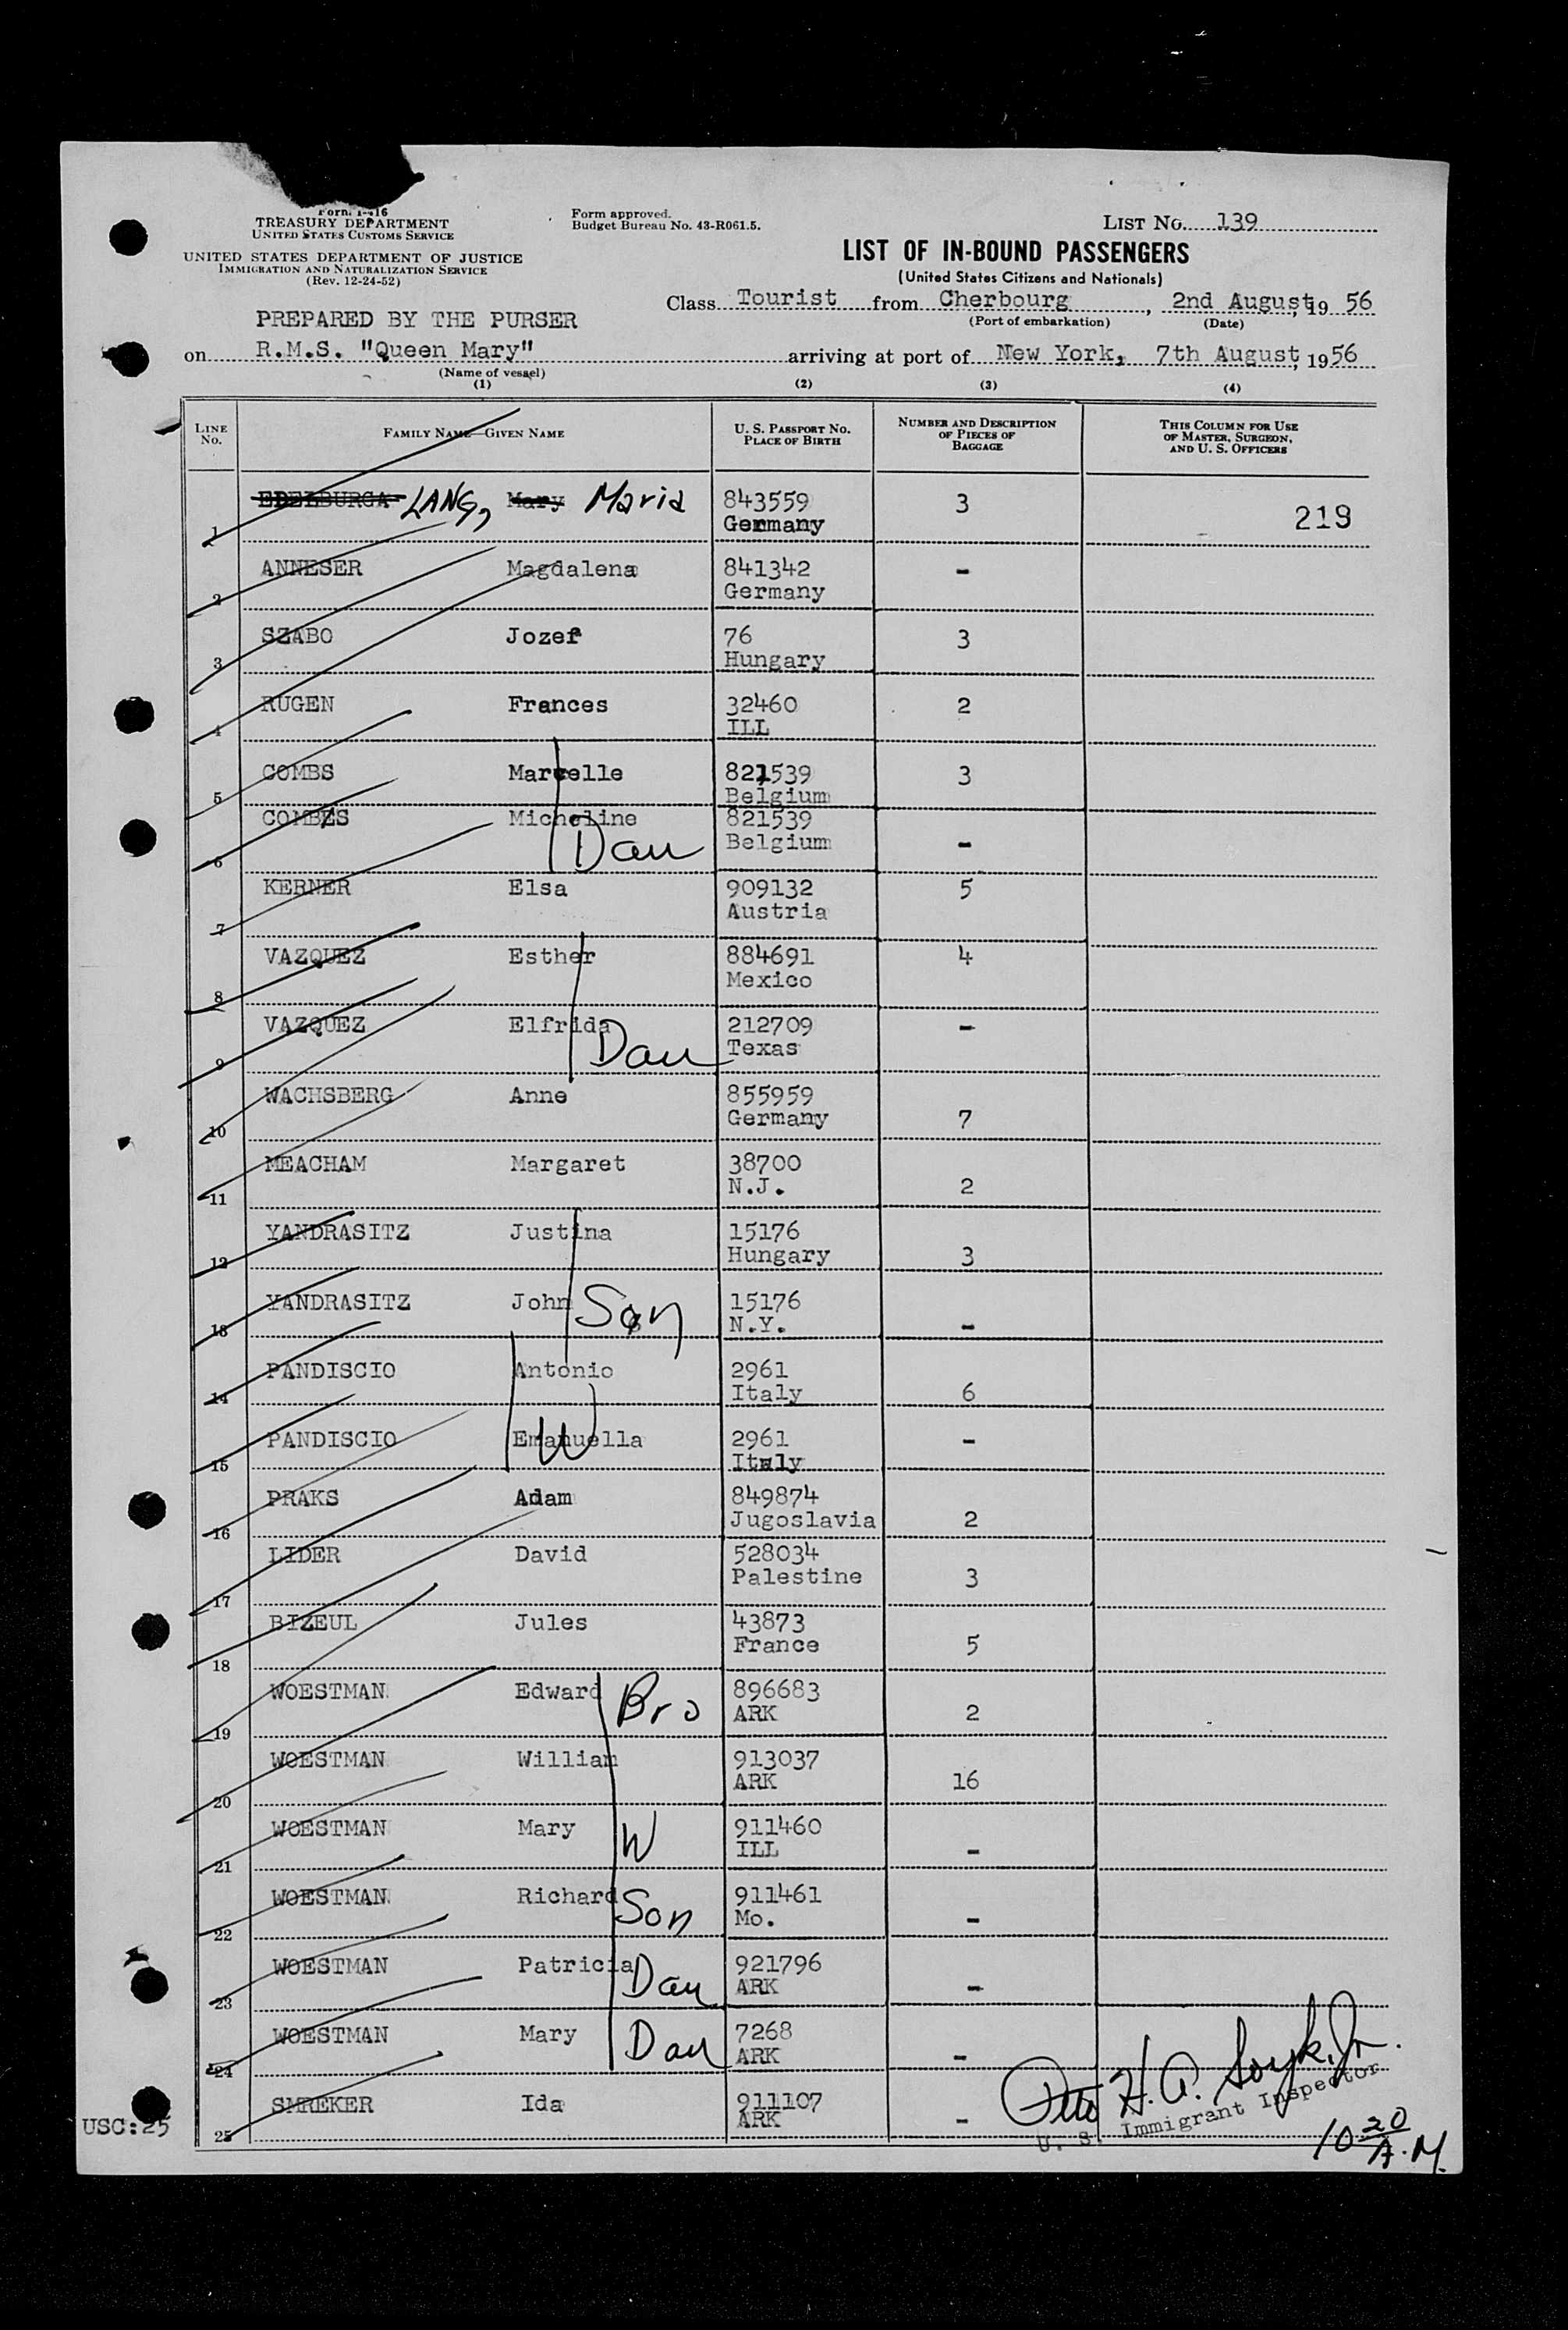 Form I-416
TREASURY DEPARTMENT
UNITED STATES CUSTOMS SERVICE
UNITED STATES DEPARTMENT OF JUSTICE
IMMIGRATION AND NATURALIZATION SERVICE
(Rev. 12-24-52)
Form approved.
Budget Bureau No. 43-R061.5.
LIST NO. 139
LIST OF IN-BOUND PASSENGERS
(United States Citizens and Nationals)
Class Tourist from Cherbourg, 2nd August, 19 56
(Port of embarkation) (Date)
PREPARED BY THE PURSER
on R.M.S. "Queen Mary" arriving at port of New York, 7th August, 1956
(Name of vessel)
(1) (2) (3) (4)
LINE NO. FAMILY NAME—GIVEN NAME U. S. PASSPORT NO. PLACE OF BIRTH NUMBER AND DESCRIPTION OF PIECES OF BAGGAGE THIS COLUMN FOR USE OF MASTER, SURGEON, AND U. S. OFFICERS
1 EDELBURGA LANG, Mary Maria 843559 3 219
Germany
2 ANNESER Magdalena 841342 -
Germany
3 SZABO Jozef 76 3
Hungary
4 RUGEN Frances 32460 2
ILL
5 COMBS Marcelle 821539 3
Belgium
6 COMBES Micheline 821539
Dau Belgium -
7 KERNER Elsa 909132 5
Austria
8 VAZQUEZ Esther 884691 4
Mexico
9 VAZQUEZ Elfrida 212709 -
Dau Texas
10 WACHSBERG Anne 855959
Germany 7
11 MEACHAM Margaret 38700
N.J. 2
12 YANDRASITZ Justina 15176
Hungary 3
13 YANDRASITZ John Son 15176
N.Y. -
14 PANDISCIO Antonio 2961
Italy 6
15 PANDISCIO Emanuella W 2961 -
Italy
16 PRAKS Adam 849874
Jugoslavia 2
17 LIDER David 528034
Palestine 3
18 BIZEUL Jules 43873
France 5
19 WOESTMAN Edward Bro 896683
ARK 2
20 WOESTMAN William 913037
ARK 16
21 WOESTMAN Mary W 911460
ILL -
22 WOESTMAN Richard Son 911461
Mo. -
23 WOESTMAN Patricia Dau 921796
ARK -
24 WOESTMAN Mary Dau 7268
ARK -
25 SMREKER Ida 911107
ARK -
USC:25
U. S. Immigrant Inspector
10 20 A.M.